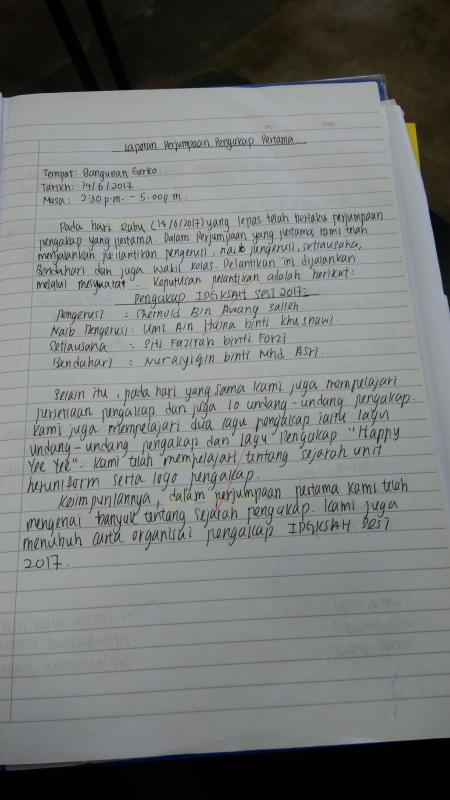 No: Date:
Laporan Perjumpaan Pengakap Pertama.
Tempat: Bangunan Gerko.
Tarikh: 14/6/2017.
Masa: 2:30 p.m. – 5.00 p.m.
Pada hari Rabu (14/6/2017) yang lepas telah berlaku perjumpaan
pengakap yang pertama. Dalam Perjumpaan yang pertama kami telah
menjalankan perlantikan pengerusi, naib pengerusi, setiausaha,
Bendahari dan juga wakil kelas. Pelantikan ini dijalankan
melalui mesyuarat. Keputusan pelantikan adalah berikut:
Pengakap IPGKSAH SESI 2017:
Pengerusi : Shernold Bin Awang Salleh
Naib Pengerusi: Umi Ain Husna binti Khushawi.
Setiausaha : Siti Fazirah binti Forzi
Bendahari : Nuraiyiqin binti Mhd Asri.
Selain itu, pada hari yang sama kami juga mempelajari
persetiaan pengakap dan juga 10 undang-undang pengakap.
Kami juga mempelajari dua lagu pengakap iaitu lagu
undang-undang pengakap dan lagu Pengakap "Happy
Yee Yee". Kami telah mempelajari tentang sejarah unit
beruniform serta logo pengakap.
Kesimpulannya, dalam perjumpaan pertama kami telah
mengenai banyak tentang sejarah pengakap. Kami juga
menubuh carta organisai pengakap IPGKSAH SESI
2017.